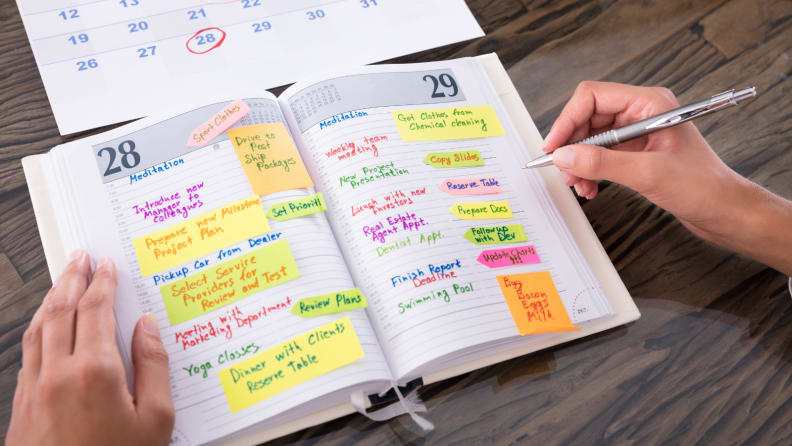 12 13 14
19 20 21 22 23 24
26 27 28 29 30 31
28
Meditation
Sport Clothes
Drive to
Post
Ship
Packages
Introduce new
Manager to
colleagues
Set Priority
Prepare new Milestone
Project Plan
Pickup Car from Dealer
Select Service
Providers for
Review and Test
Review Plans
Meeting with
Marketing Department
Yoga Classes
Dinner with Clients
Reserve Table
29
Meditation
Got Clothes from
Chemical cleaning
Weekly team
meeting
Copy Slides
New Project
Presentation
Reserve Table
Lunch with new
investors
Prepare Docs
Real Estate
Agent Appt.
Follow up
with Dev
Dentist Appt.
Update Charts
!!!
Finish Report
Deadline
Buy
Bacon
Eggs
Milk
Swimming Pool